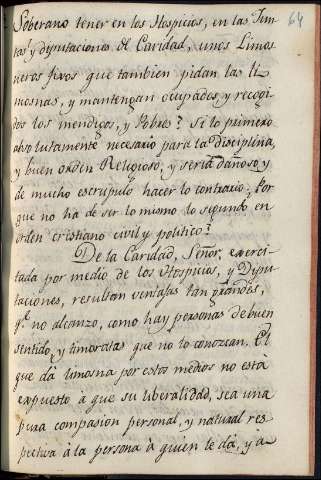 64
Soberano tener en los Hospicios, en las Jun
tas, y diputaciones de Caridad, unos Limos
neros fixos que tambien pidan las li
mosnas, y mantengan ocupados y recogi
dos los mendigos, y Pobres? Si lo primero
absolutamente necesario para la disciplina,
y buen orden Religioso; y seria dañoso, y
de mucho escrupulo hacer lo contrario; Por
que no ha de ser lo mismo lo segundo en
orden cristiano civil y politico?
De la Caridad, Señor, exerci-
tada por medio de los Hospicios, y Dipu
taciones, resultan ventajas tan grandes,
qe. no alcanzo, como hay personas de buen
sentido, y timoratas que no lo conozcan. El
que dà limosna por estos medios no està
expuesto à que su liberalidad, sea una
pura compasion personal, y natural res
pectiva à la persona à quien le dà, y à